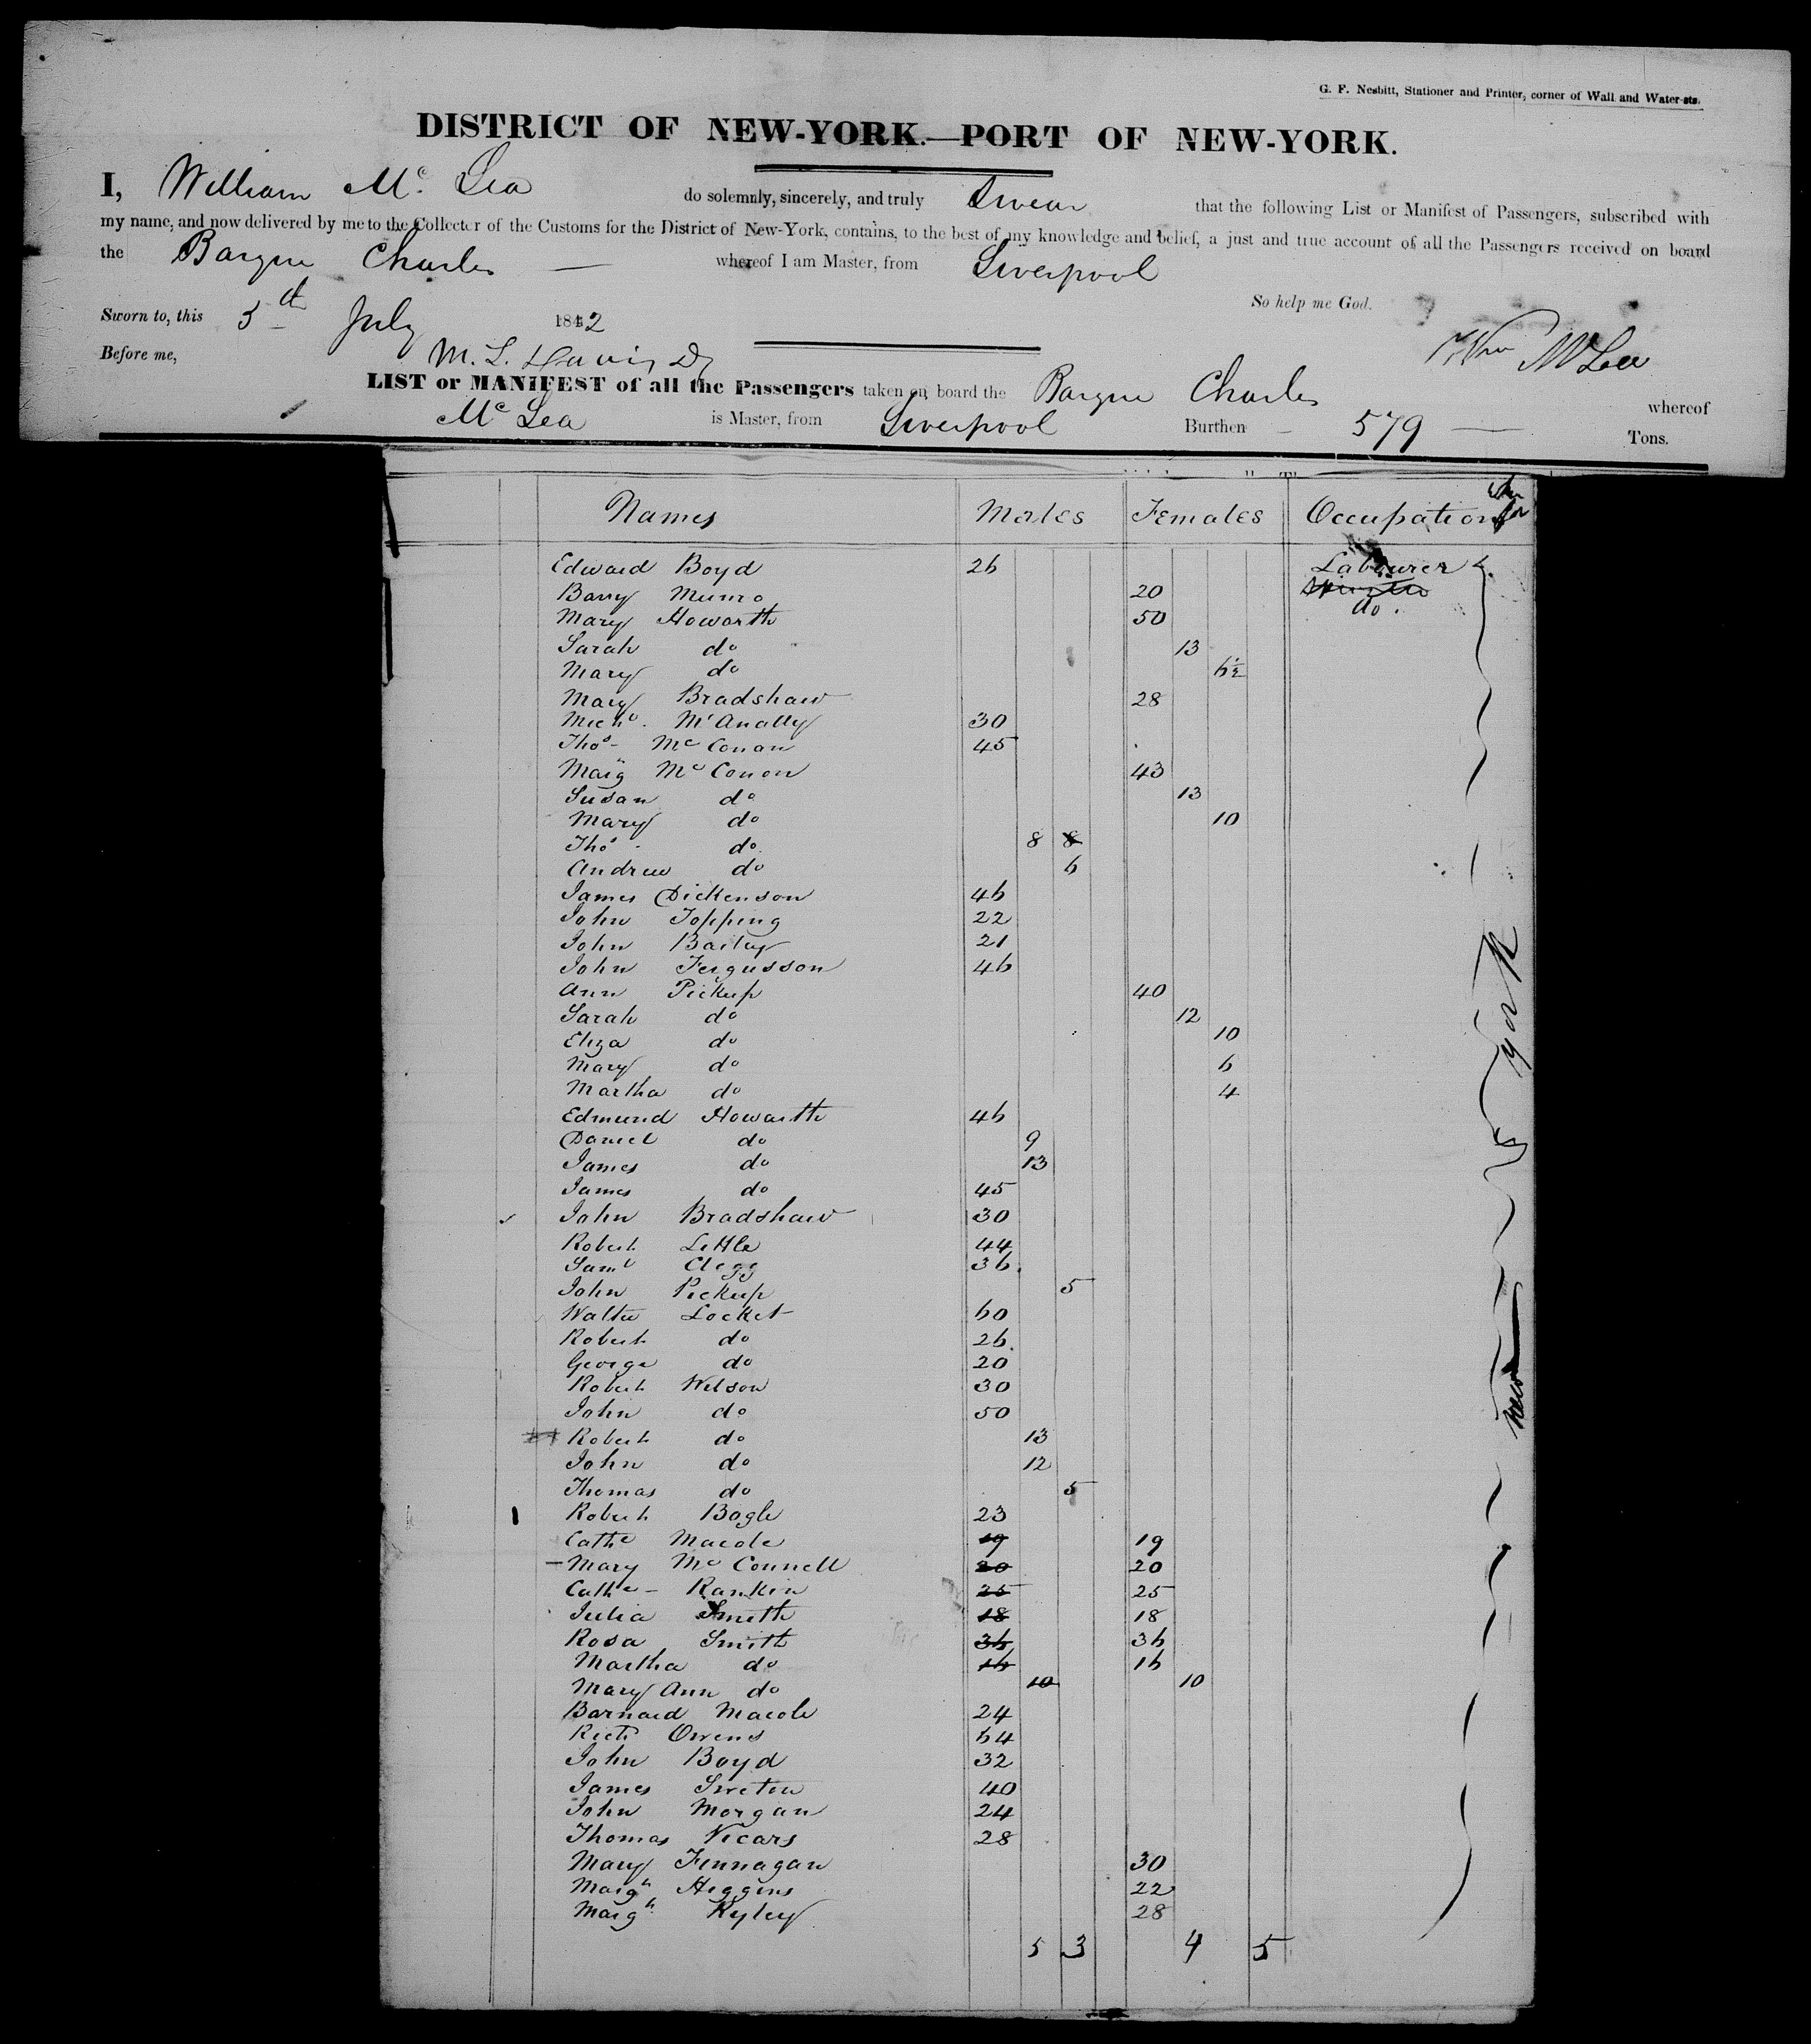 G. F. Nesbitt, Stationer and Printer, corner of Wall and Water-sts.
DISTRICT OF NEW-YORK.—PORT OF NEW-YORK.
I, William Mc Lea do solemnly, sincerely, and truly Swear that the following List or Manifest of Passengers, subscribed with
my name, and now delivered by me to the Collector of the Customs for the District of New-York, contains, to the best of my knowledge and belief, a just and true account of all the Passengers received on board
the Barque Charles — whereof I am Master, from Liverpool
So help me God.
Sworn to, this 5th July 1842
Wm McLea
Before me, M. L. Davis
LIST or MANIFEST of all the Passengers taken on board the Barque Charles whereof
Mc Lea is Master, from Liverpool Burthen — 579 — Tons.
Names Males Females Occupation
Edward Boyd 26 Labourer
Barry Munro 20 do.
Mary Howarth 50
Sarah do 13
Mary do 6½
Mary Bradshaw 28
Michl. McAnally 30
Thos Mc Conan 45
Marg Mc Conon 43
Susan do 13
Mary do 10
Thos do 8 8
Andrew do 6
James Dickenson 46
John Topping 22
John Bailey 21
John Fergusson 46
Ann Pickup 40
Sarah do 12
Eliza do 10
Mary do 6
Martha do 4
Edmund Howarth 46
Daniel do 9
James do 13
James do 45
John Bradshaw 30
Robert Little 44
Saml Clegg 36
John Pickup 5
Walter Locket 60
Robert do 26
George do 20
Robert Wilson 30
John do 50
Robert do 13
John do 12
Thomas do 5
Robert Bogle 23
Cathe Macole 19 19
Mary Mc Connell 20 20
Cathe Rankin 25 25
Julia Smith 18 18
Rosa Smith 36 36
Martha do 16 16
Mary Ann do 10 10
Barnard Macole 24
Richd Owens 64
John Boyd 32
James Sweton 40
John Morgan 24
Thomas Vicars 28
Mary Finnagan 30
Margt Higgins 22
Margt Ryley 28
5 3 4 5
New York